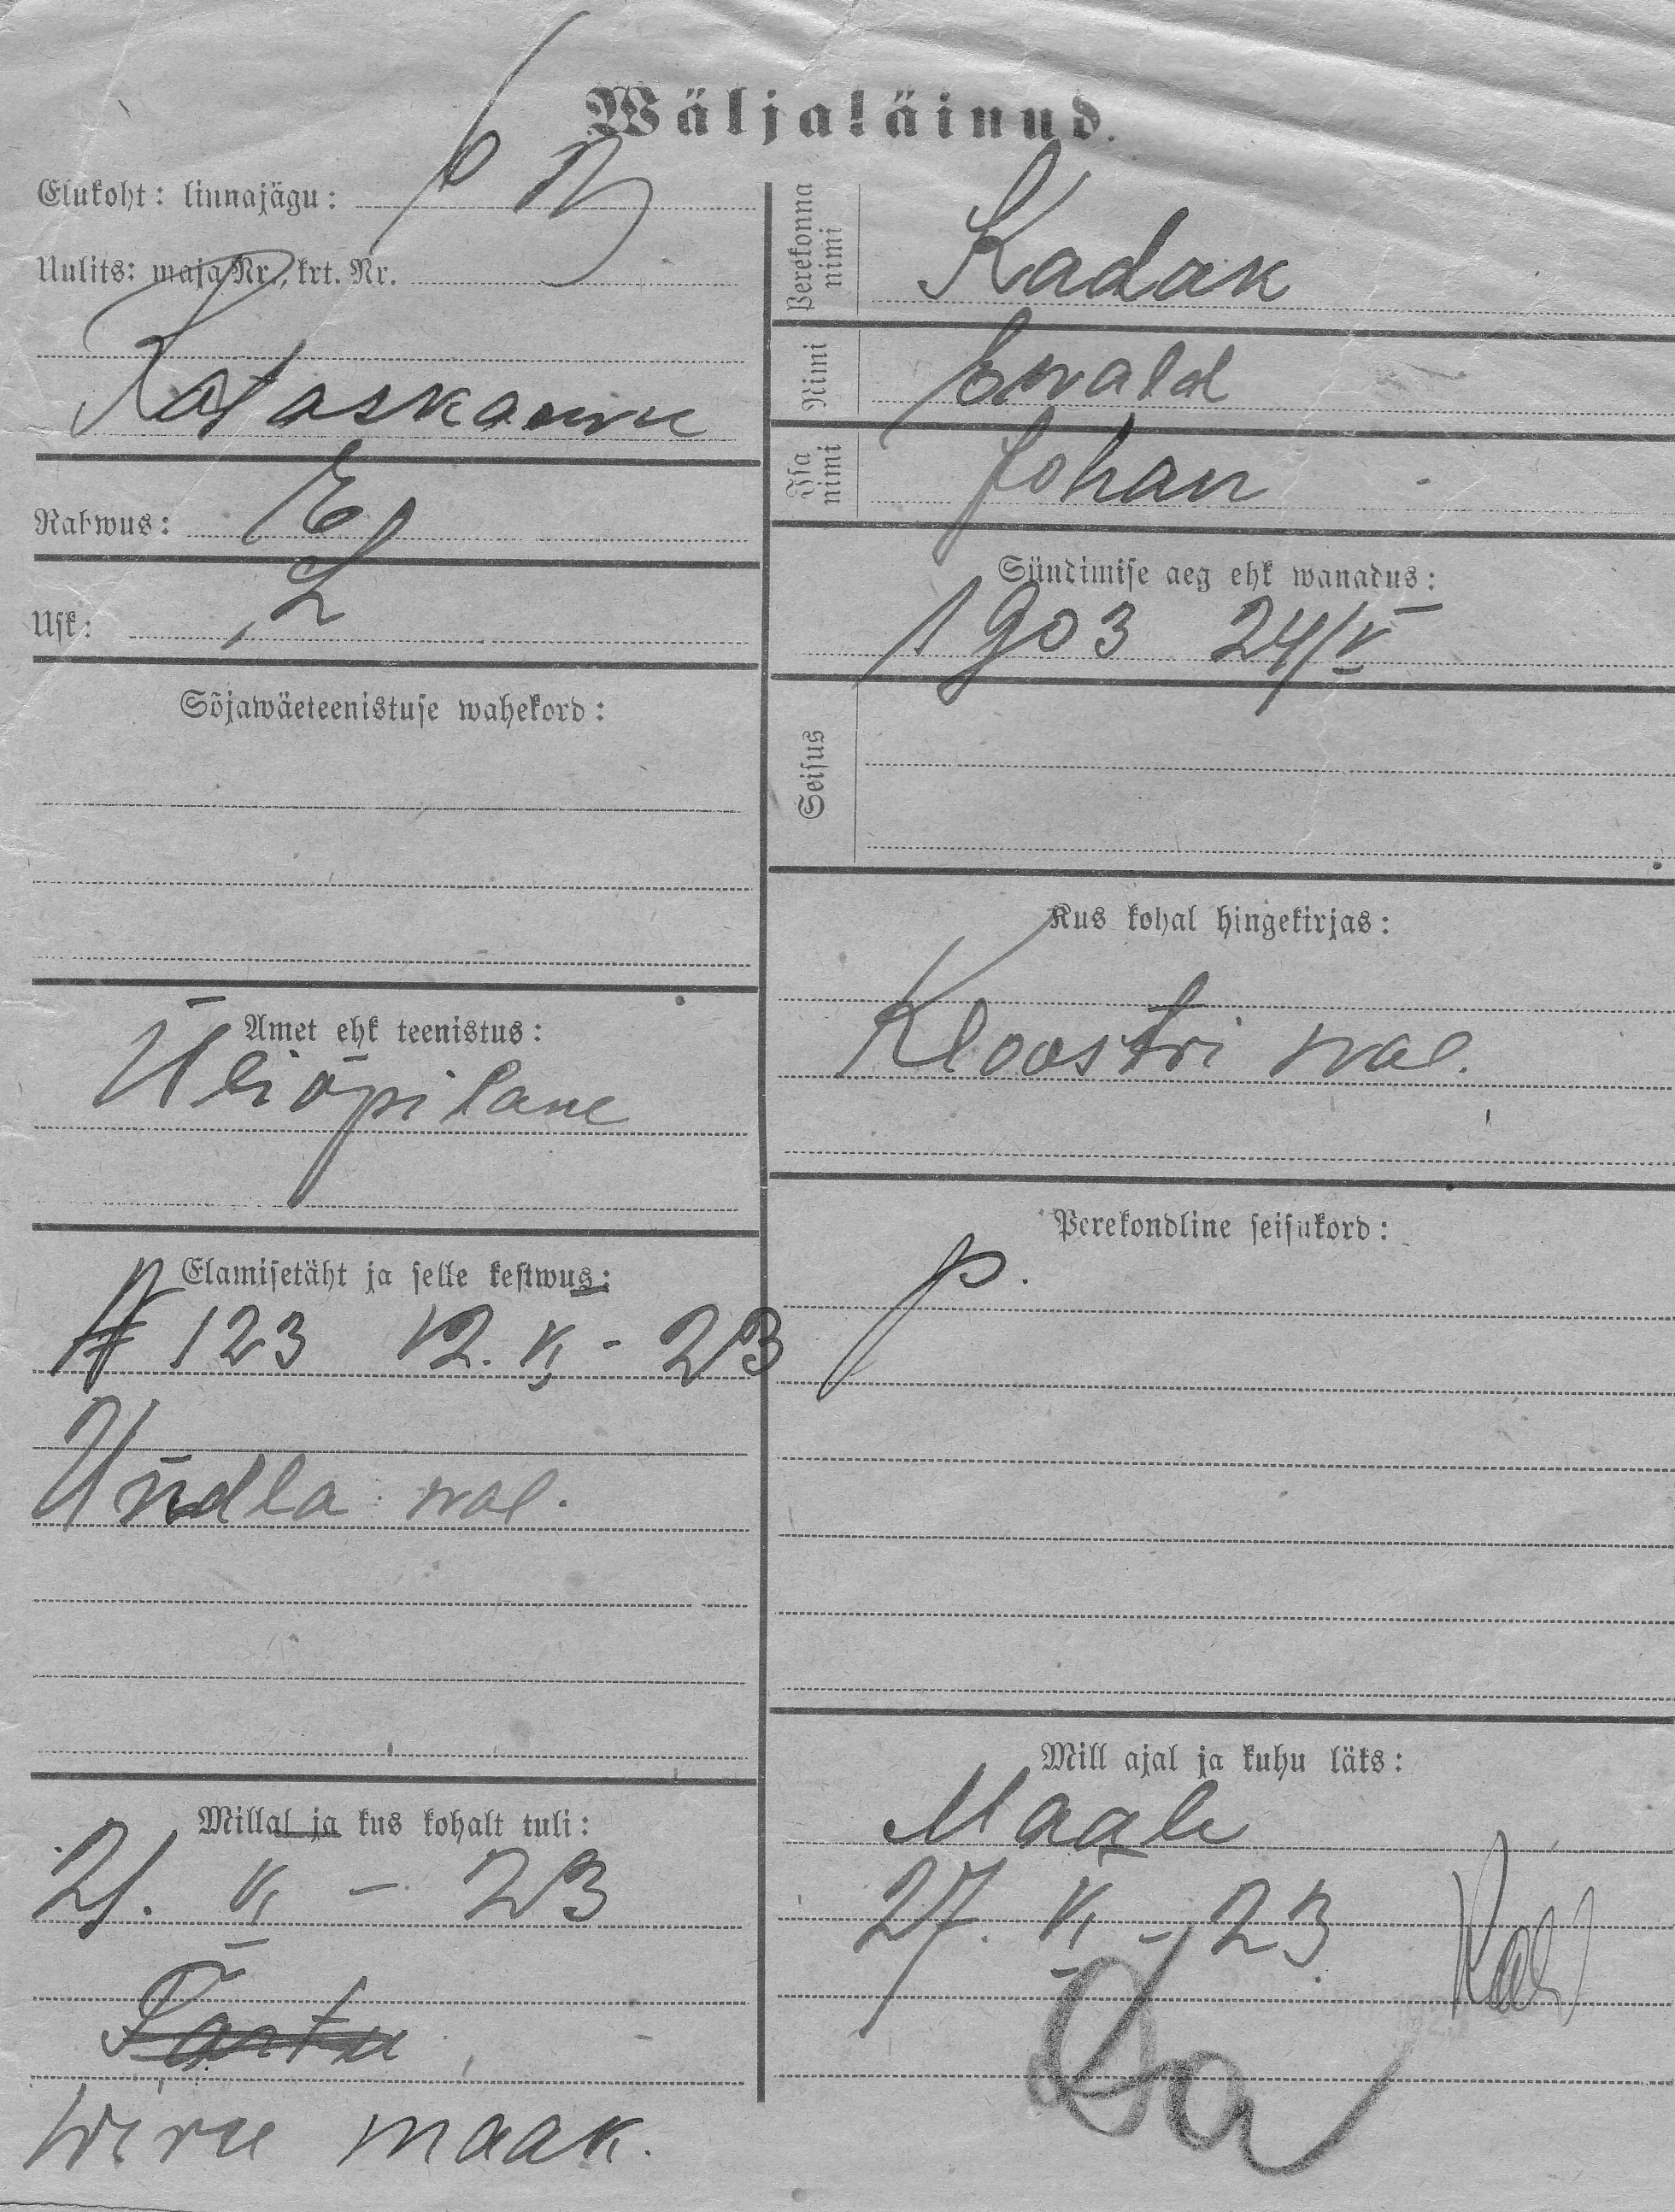 Wäljaläinud.
Elukoht: linnajägu:
Uulits: maja Nr., krt. Nr.
Rahwus: E
Usk: L
Sõjawäeteenistuse wahekord:
Amet ehk teenistus:
Üliõpilane
Elamisetäht ja selle kestwus:
123 12. VI - 23
Undla wal.
Millal ja kus kohalt tuli:
21. VI - 23
Tartu
Wiru maak.
Perekonna nimi
Kadak
Nimi
Ewald
Isa nimi
Johan
Sündimise aeg ehk wanadus:
1903 24/V
Seisus
Kus kohal hingekirjas:
Kloostri wal.
Perekondline seisukord:
p.
Mill ajal ja kuhu läks:
Maale
27. VI - 23